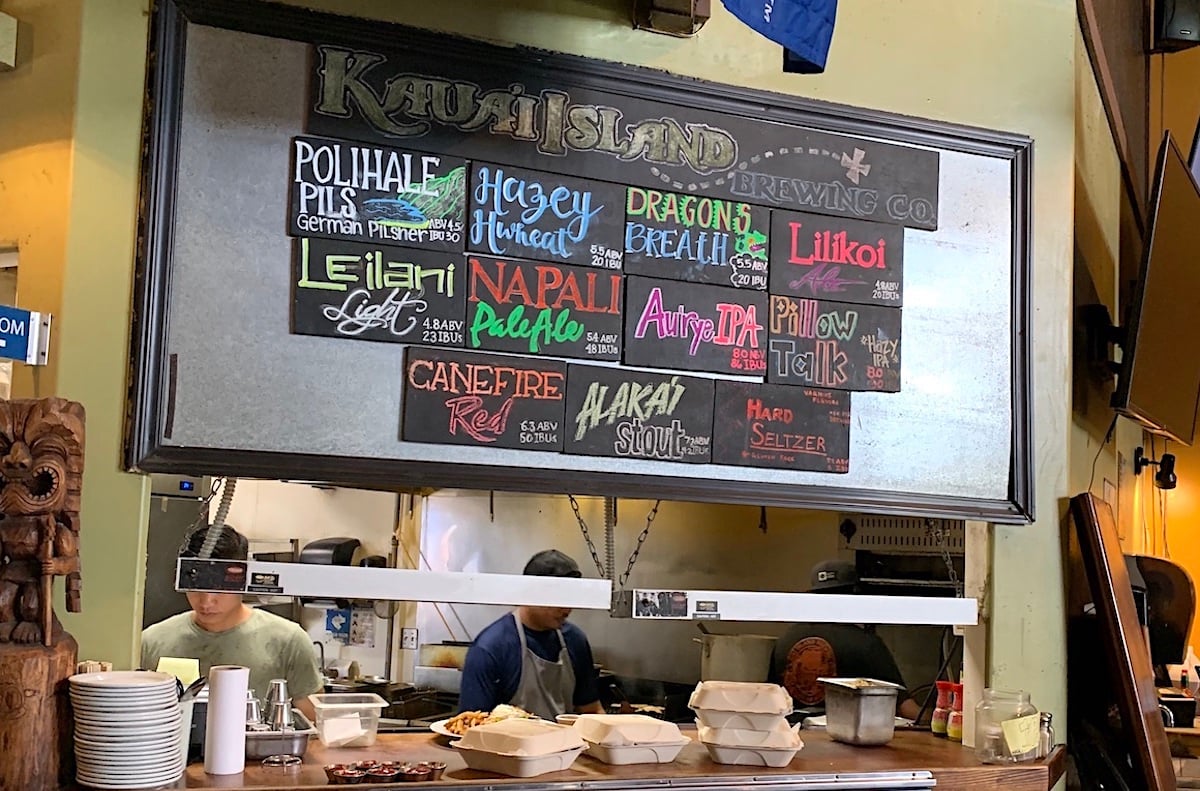 KAUA'I ISLAND
BREWING CO.
POLIHALE
PILS
German Pilsner
ABV 4.5
IBU 30
Hazey
Hwheat
5.5 ABV
20 IBU
DRAGON'S
BREATH
5.5 ABV
20 IBU
Lilikoi
Ale
4.8 ABV
20 IBUs
Leilani
Light
4.8 ABV
23 IBUs
NAPALI
Pale Ale
5.4 ABV
48 IBUs
Auirye IPA
8.0 ABV
86 IBUs
Pillow
Talk
"Hazy
IPA"
8.0
CANEFIRE
Red
6.3 ABV
50 IBUs
ALAKA'I
Stout
HARD
SELTZER
VARIOUS
FLAVORS
COM